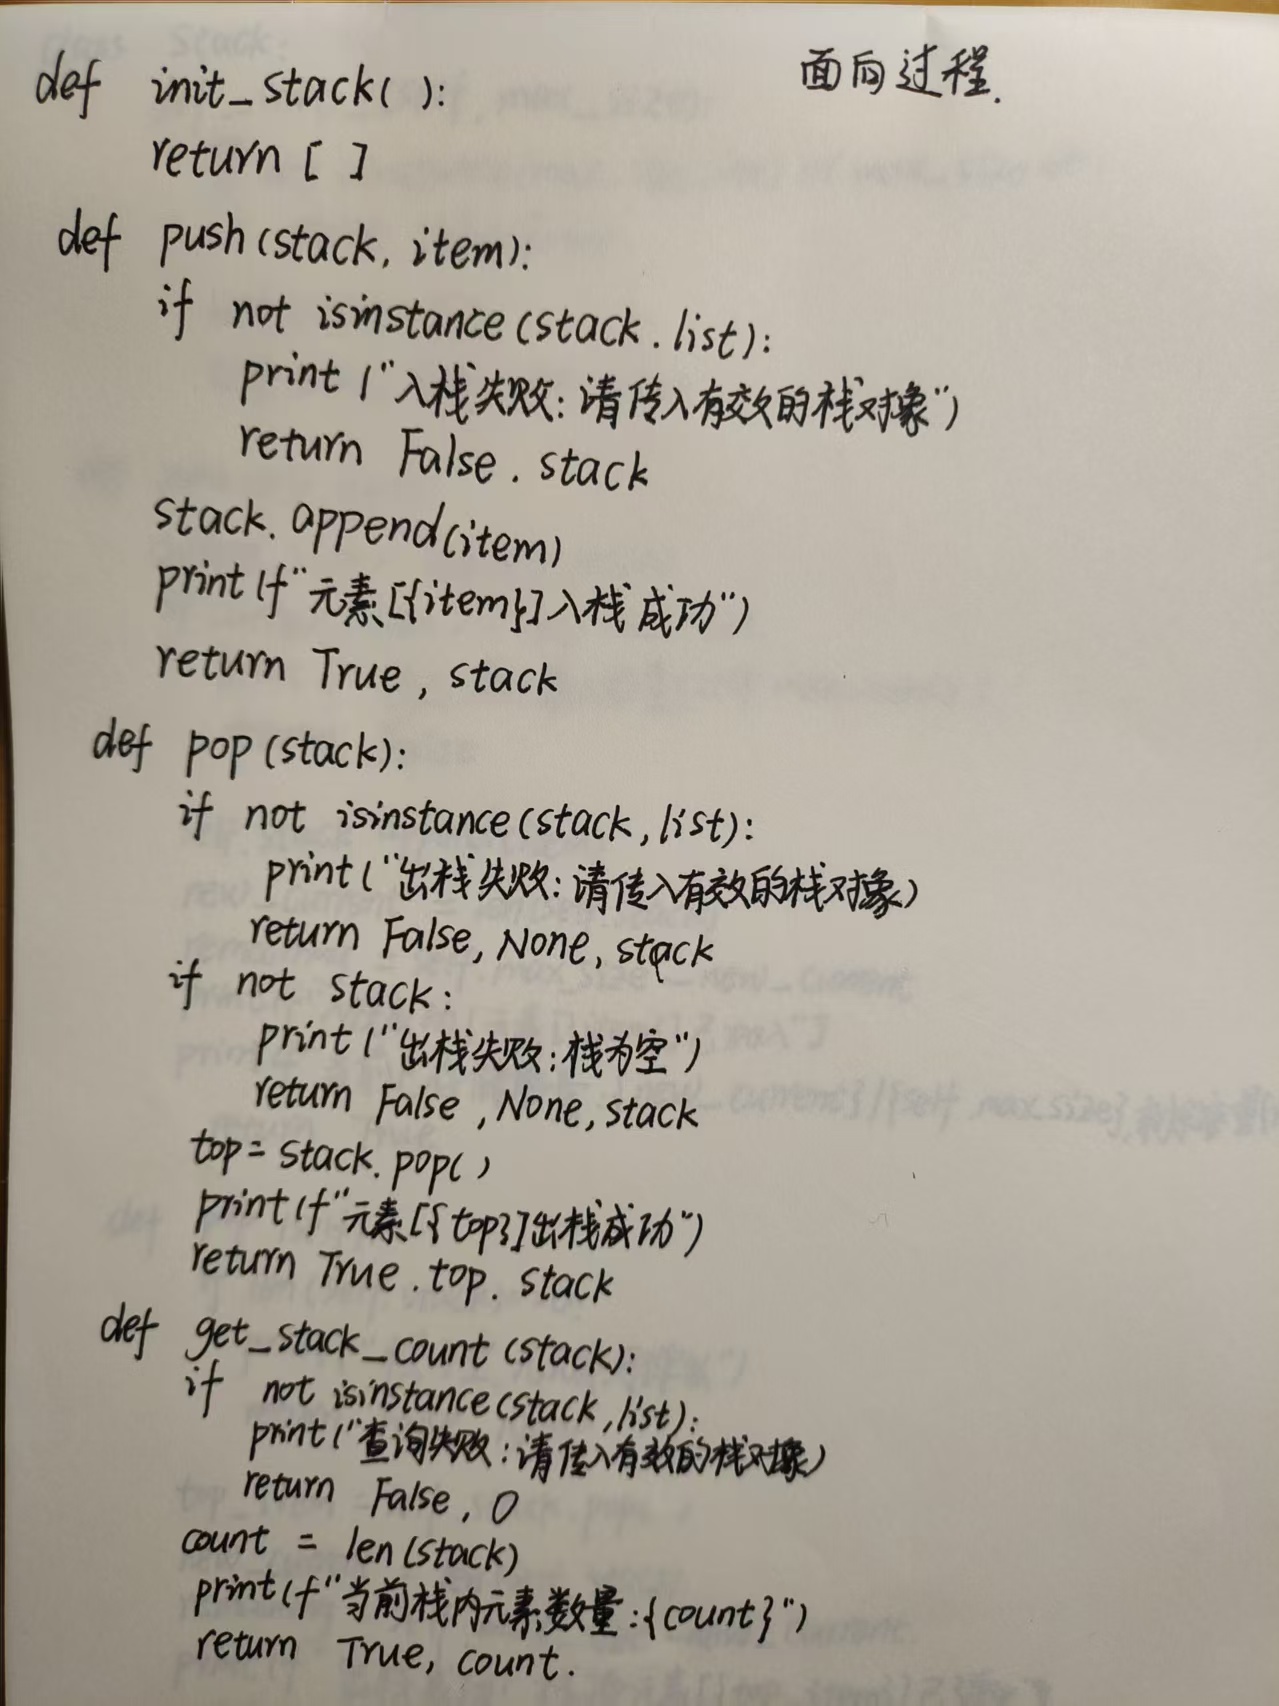 面向过程.
def init_stack( ):
return [ ]
def push(stack, item):
if not isinstance(stack.list):
print("入栈失败:请传入有效的栈对象")
return False. stack
stack.append(item)
print(f"元素[{item}]入栈成功")
return True, stack
def pop(stack):
if not isinstance(stack,list):
print("出栈失败:请传入有效的栈对象)
return False, None, stack
if not stack:
print("出栈失败:栈为空")
return False, None, stack
top= stack.pop( )
print(f"元素[{top}]出栈成功")
return True.top. stack
def get_stack_count (stack):
if not isinstance(stack,list):
print("查询失败:请传入有效的栈对象)
return False, 0
count = len(stack)
print(f"当前栈内元素数量:{count}")
return True, count.